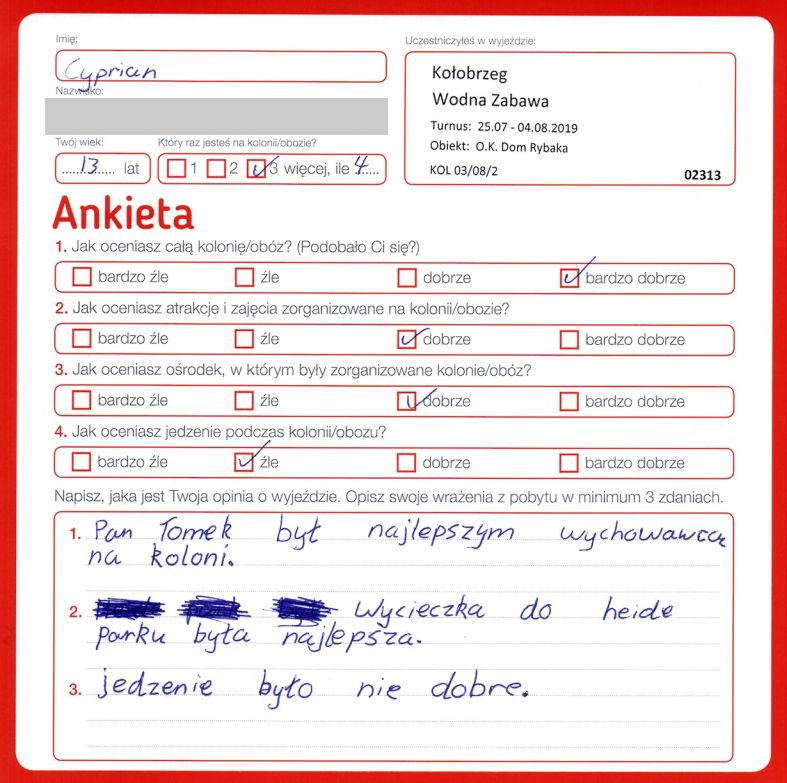 Imię:
Cyprian
Nazwisko:
Twój wiek:
Który raz jesteś na kolonii/obozie?
13 lat
1 2 3 więcej, ile 4
Uczestniczyłeś w wyjeździe:
Kołobrzeg
Wodna Zabawa
Turnus: 25.07 - 04.08.2019
Obiekt: O.K. Dom Rybaka
KOL 03/08/2
02313
Ankieta
1. Jak oceniasz całą kolonię/obóz? (Podobało Ci się?)
bardzo źle źle dobrze bardzo dobrze
2. Jak oceniasz atrakcje i zajęcia zorganizowane na kolonii/obozie?
bardzo źle źle dobrze bardzo dobrze
3. Jak oceniasz ośrodek, w którym były zorganizowane kolonie/obóz?
bardzo źle źle dobrze bardzo dobrze
4. Jak oceniasz jedzenie podczas kolonii/obozu?
bardzo źle źle dobrze bardzo dobrze
Napisz, jaka jest Twoja opinia o wyjeździe. Opisz swoje wrażenia z pobytu w minimum 3 zdaniach.
1. Pan Tomek był najlepszym wychowawcą
na koloni.
2. Wycieczka do heide
parku była najlepsza.
3. jedzenie było nie dobre.